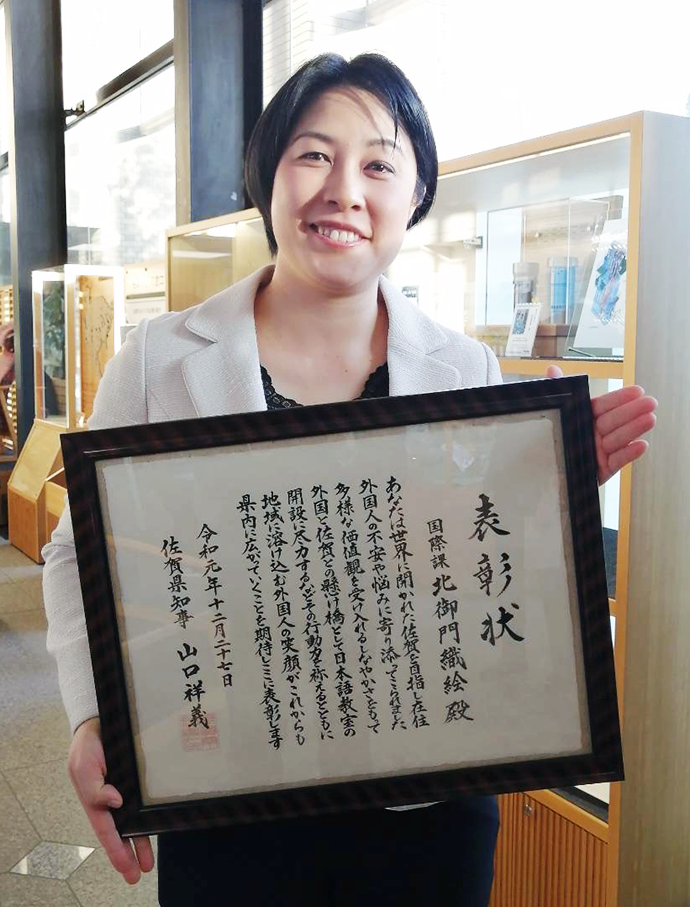 表彰状
国際課 北御門織絵 殿
あなたは世界に開かれた佐賀を目指し在住
外国人の不安や悩みに寄り添ってこられました
多様な価値観を受け入れるしなやかさをもって
外国と佐賀との懸け橋として日本語教室の
開設に尽力するなどその行動力を称えるとともに
地域に溶け込む外国人の笑顔がこれからも
県内に広がっていくことを期待しここに表彰します
令和元年十二月二十七日
佐賀県知事 山口祥義